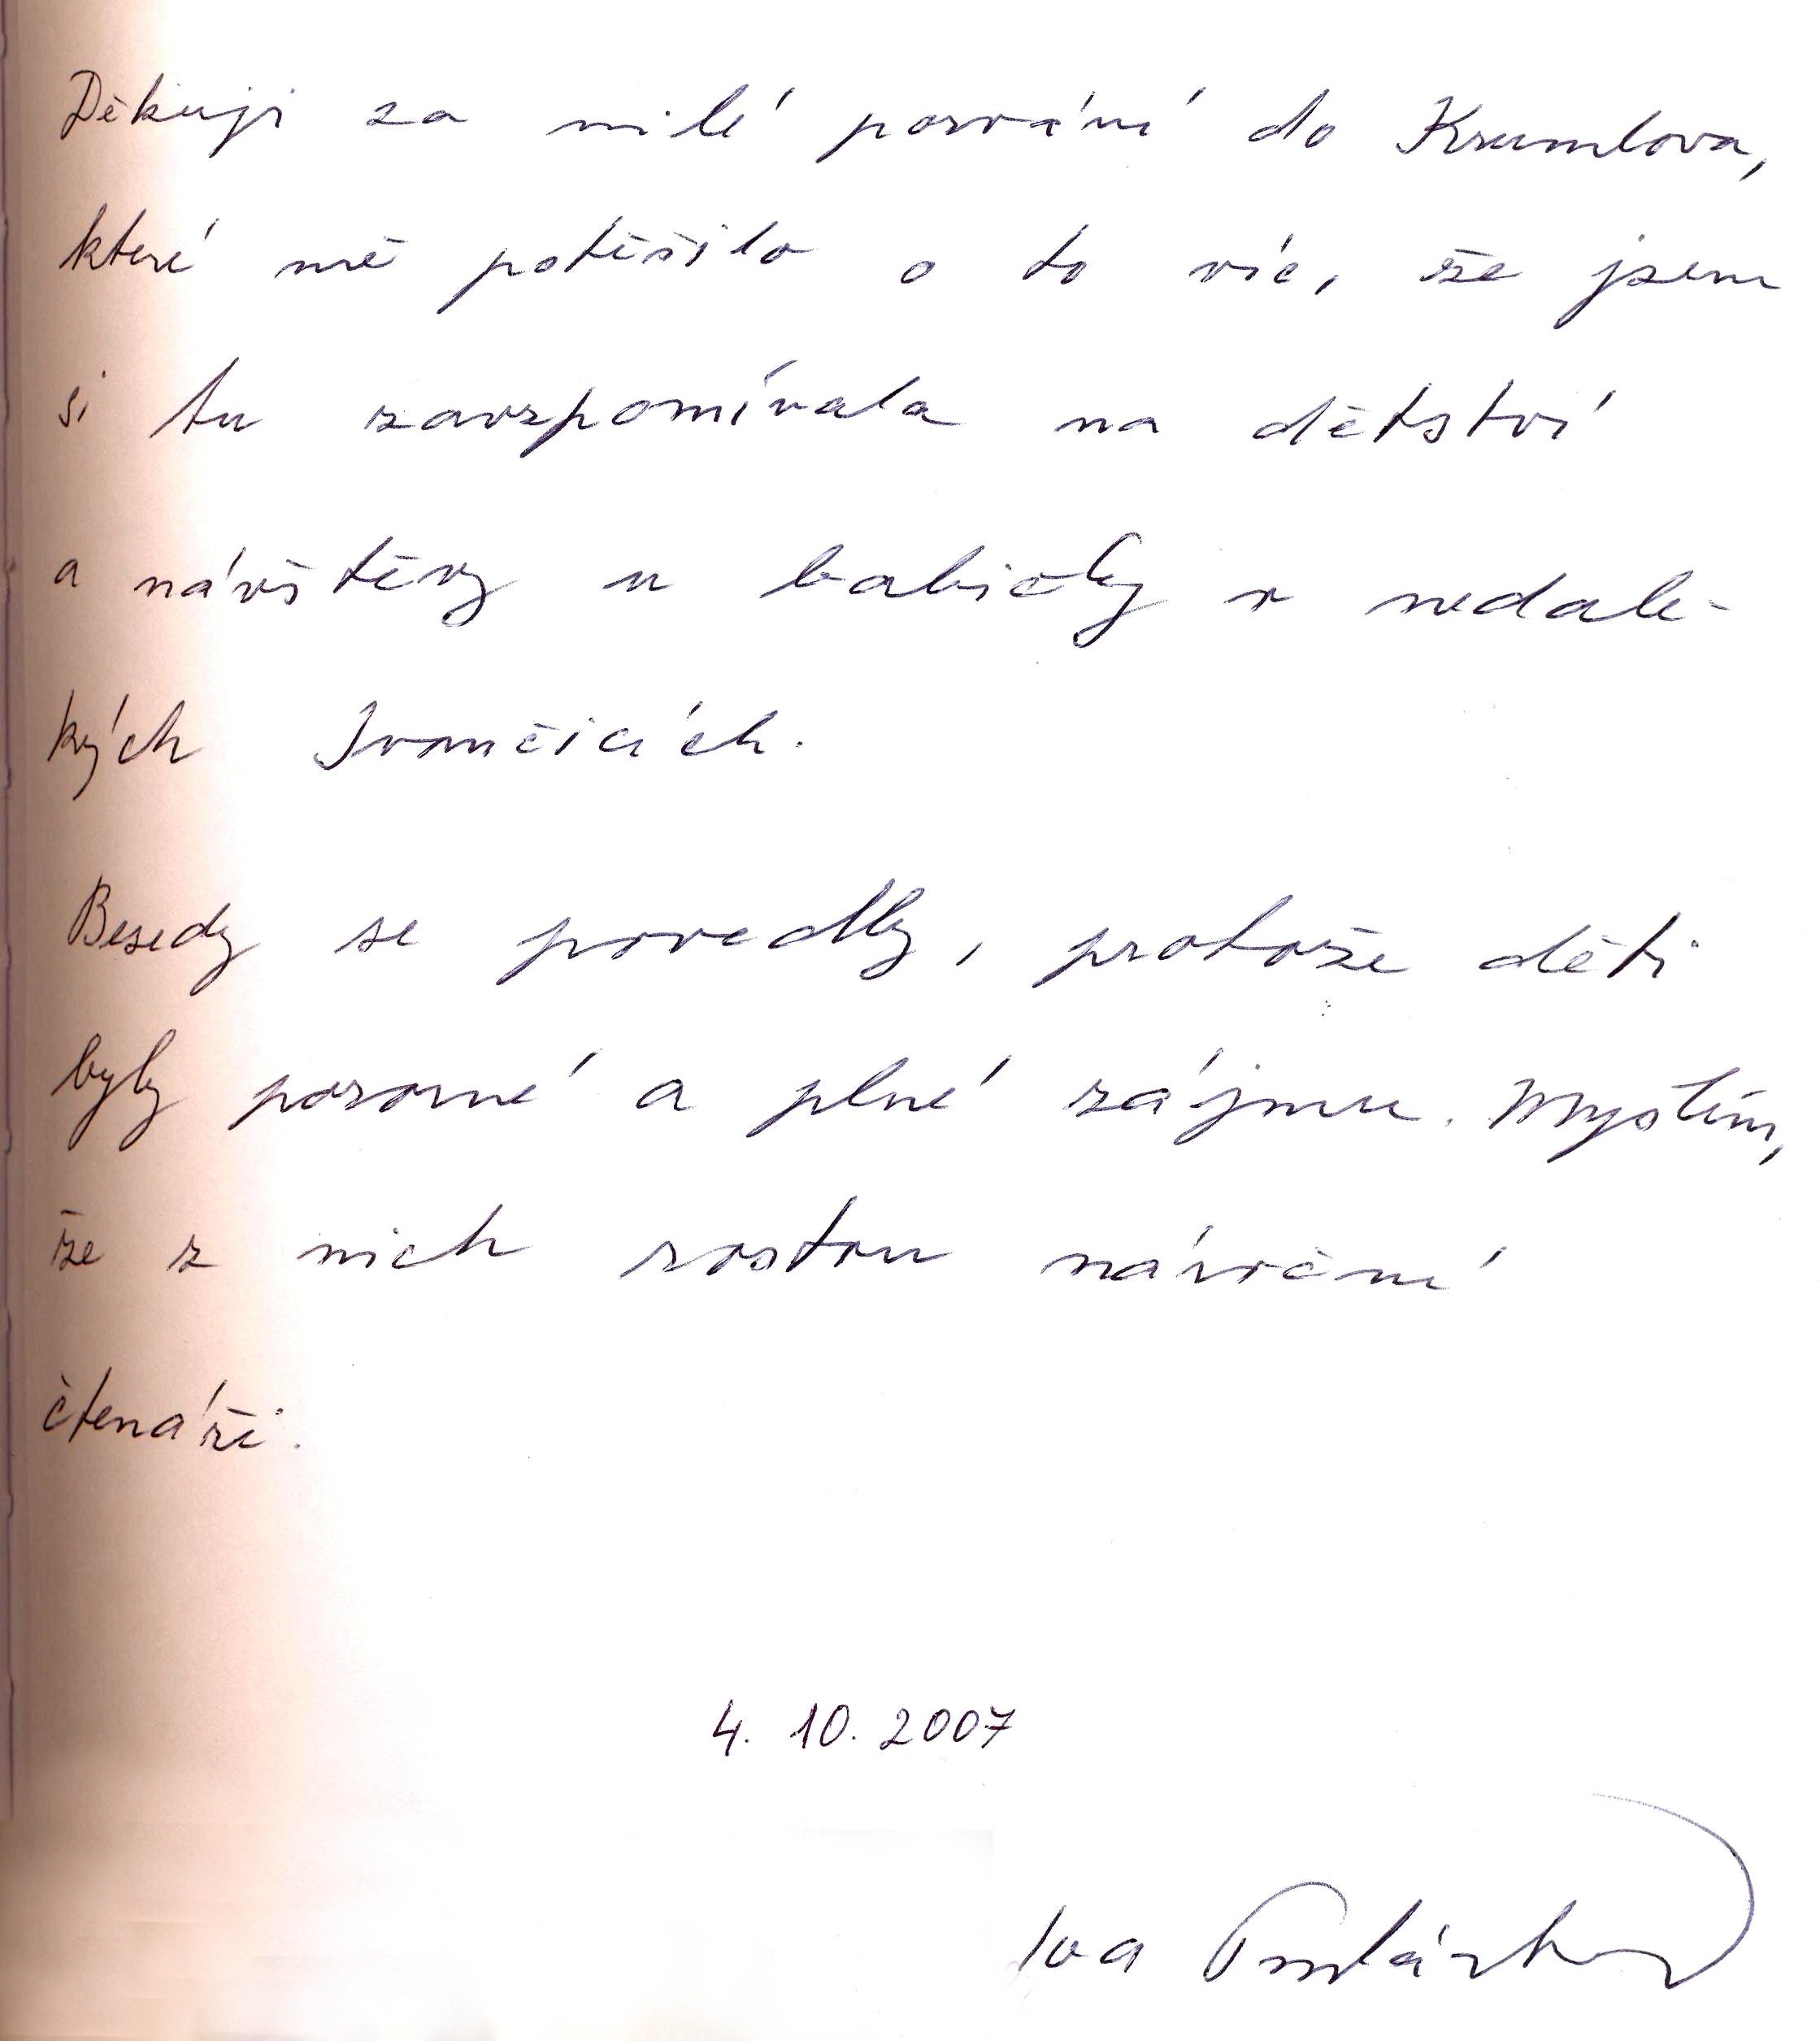 Děkuji za milé pozvání do Krumlova,
které mě potěšilo o to víc, že jsem
si tu zavzpomínala na dětství
a návštěvy u babičky v nedale-
kých Ivančicích.
Besedy se povedly, protože děti
byly pozorné a plné zájmu. Myslím,
že z nich rostou nároční
čtenáři.
4. 10. 2007
Iva